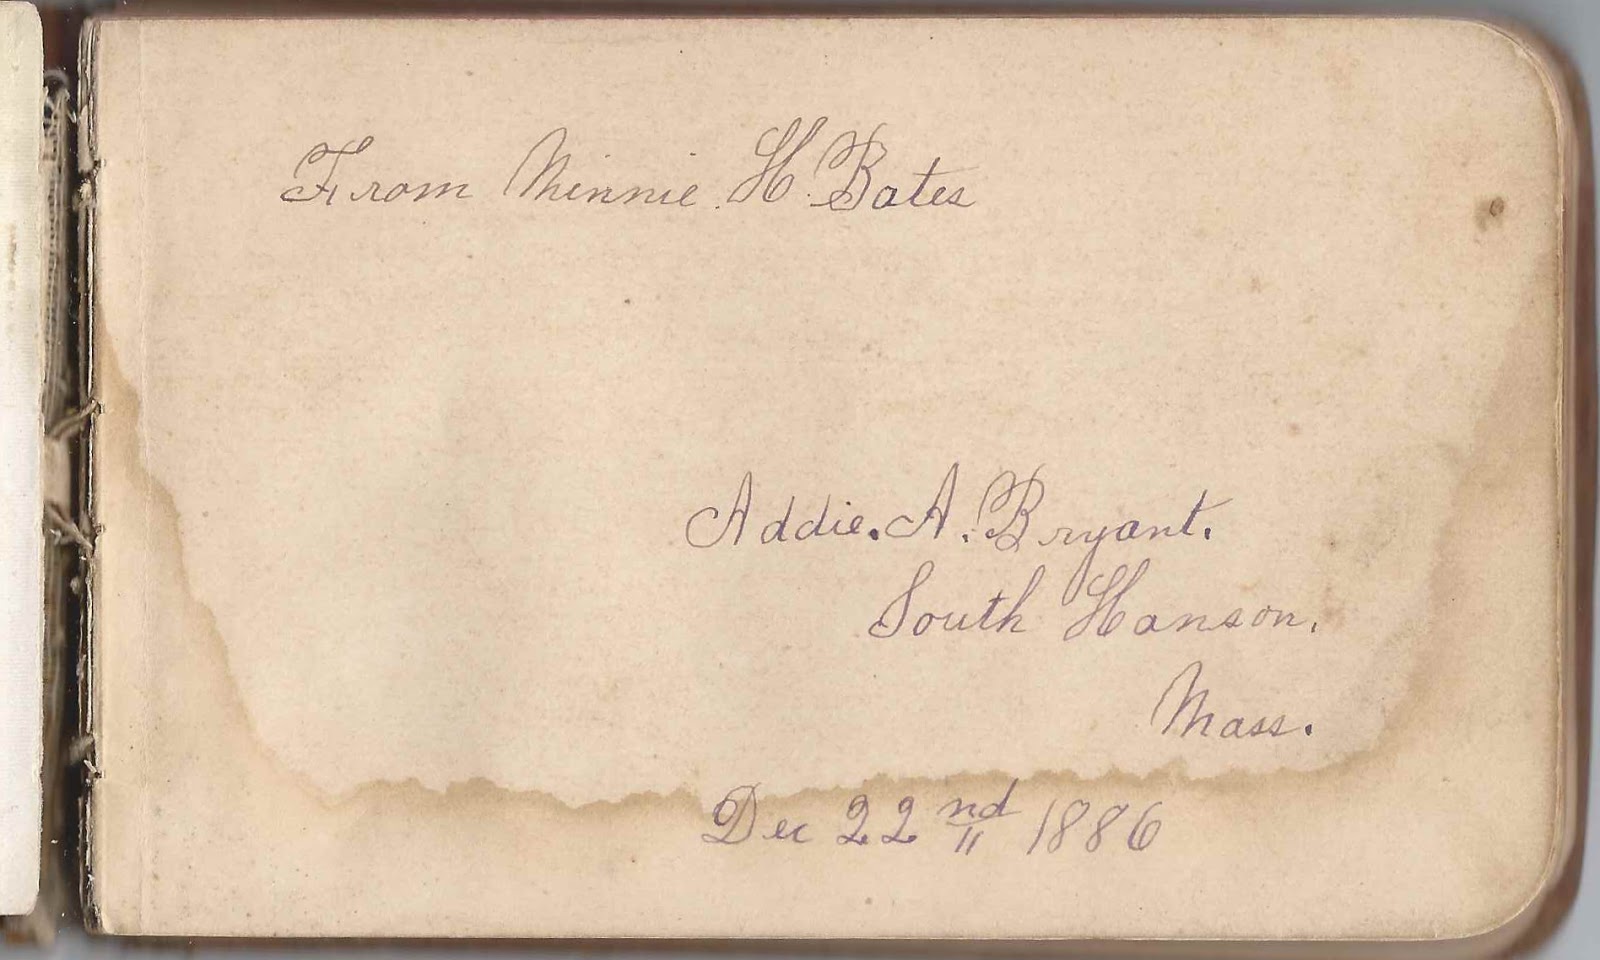 From Minnie. H. Bates
Addie. A. Bryant.
South Hanson,
Mass.
Dec 22nd 1886